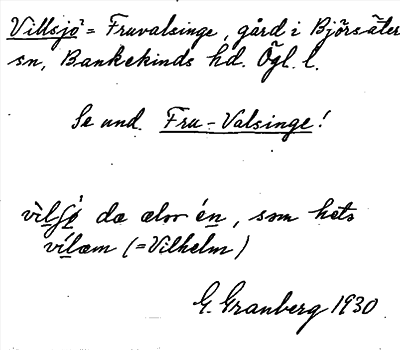 Villsjö = Fruvalsinge, gård i Björsäter
sn, Bankekinds hd. Ögl. l.
Se und. Fru-Valsinge!
da ælov én, som hets
vílæm (=Vilhelm)
G. Granberg 1930